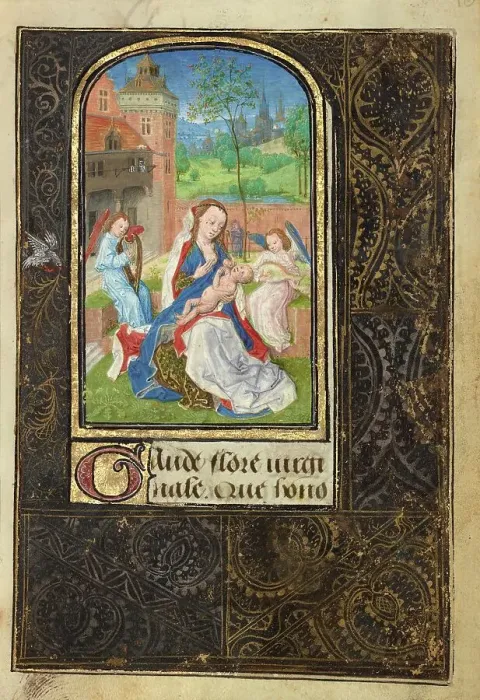 Gaude flore uirgi
nale. Que hono